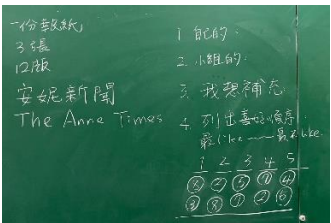 一份報紙
3張
12版
安妮新聞
The Anne Times
1 自己的.
2. 小組的.
3. 我想補充
4. 列出喜好順序
最like —— 最不like
1 2 3 4 5